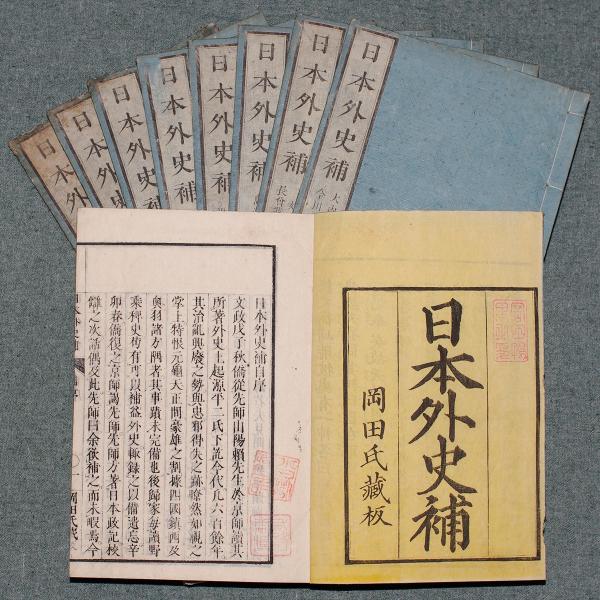 日本外史補
日本外史補
日本外史補
日本外史補
日本外史補
日本外史補
日本外史
日本外
日本外史補
岡田氏藏板
日本外史補自序
文政戊子秋僑從先師山陽賴先生於京師讀其
所著外史上起源平二氏下訖今代凡六百餘年
其治亂興廢之勢與忠邪得失之跡瞭然如視之
掌上特恨元龜天正間豪雄之割據四國鎮西及
奥羽諸方隅者其事蹟未完備也後歸家每讀野
乘稗史苟有可以補益外史輙錄之以備遺忘辛
卯春僑復之京師謁先師先師方著日本政記校
讎之次話偶及此先師曰余欲補之而未暇焉今